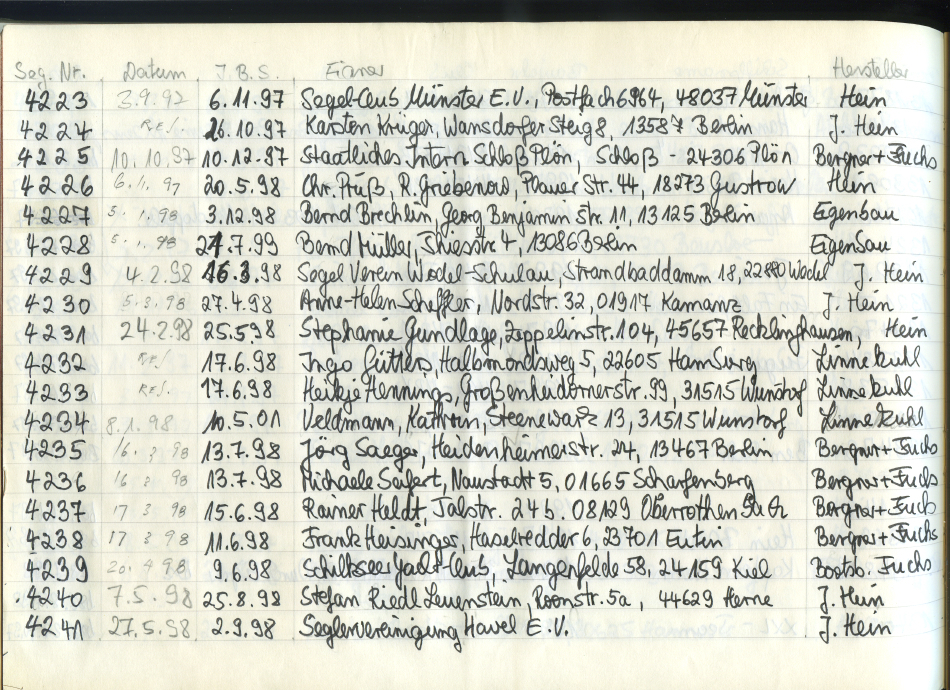 Seg. Nr. Datum J.B.S. Eigner Hersteller
4223 3.9.92 6.11.97 Segel-Club Münster E.V., Postfach 6964, 48037 Münster Hein
4224 Res. 26.10.97 Karsten Krüger, Wansdorfer Steig 8, 13587 Berlin J. Hein
4225 10.10.87 10.12.87 Staatliches Intern. Schloß Plön, Schloß - 24306 Plön Bergner + Fuchs
4226 6.1.97 20.5.98 Chr. Prüß, R. Griebenow, Plauer Str. 44, 18273 Gustrow Hein
4227 5. 1.98 3.12.98 Bernd Brechlin, Georg Benjamin Str. 11, 13125 Berlin Eigenbau
4228 5. 1.98 27.7.99 Bernd Müller, 4, 13086 Berlin Eigenbau
4229 4.2.98 16.3.98 Segel Verein Wedel-Schulau, Strandbaddamm 18, 22880 Wedel J. Hein
4230 5.3.98 27.4.98 Anne-Helen Scheffler, Nordstr. 32, 01917 Kamanz J. Hein
4231 24.2.98 25.598 Stephanie Gundlage, Zeppelinstr. 104, 45657 Recklinghausen, Hein
4232 Res. 17.6.98 Ingo Gütlers, Halbmondsweg 5, 22605 Hamburg Linnekuhl
4233 Res. 17.6.98 Heikje Hennings, Großenheidornerstr. 99, 31515 Wunstorf Linnekuhl
4234 8.1.98 10.5.01 Veldmann, Kathrin, 13, 31515 Wunstorf Linnekuhl
4235 16. 3 98 13.7.98 Jörg Saeger, Heidenheimerstr. 24, 13467 Berlin Bergner + Fuchs
4236 16 3 98 13.7.98 Michaele Seifert, Naustadt 5, 01665 Scharfenberg Bergner + Fuchs
4237 17 3 98 15.6.98 Rainer Heldt, Talstr. 24b, 08129 Bergner + Fuchs
4238 17 3 98 11.6.98 Frank Heisinger, Haselredder 6, 23701 Eutin Bergner + Fuchs
4239 20. 4 98 9.6.98 Schilkseer Yacht-Club, Langenfelde 58, 24159 Kiel Bootsb. Fuchs
4240 7.5.98 25.8.98 Stefan Riedl Leuenstein, Roonstr. 5a, 44629 Herne J. Hein
4241 27.5.98 2.9.98 Seglervereinigung Havel E.V. J. Hein